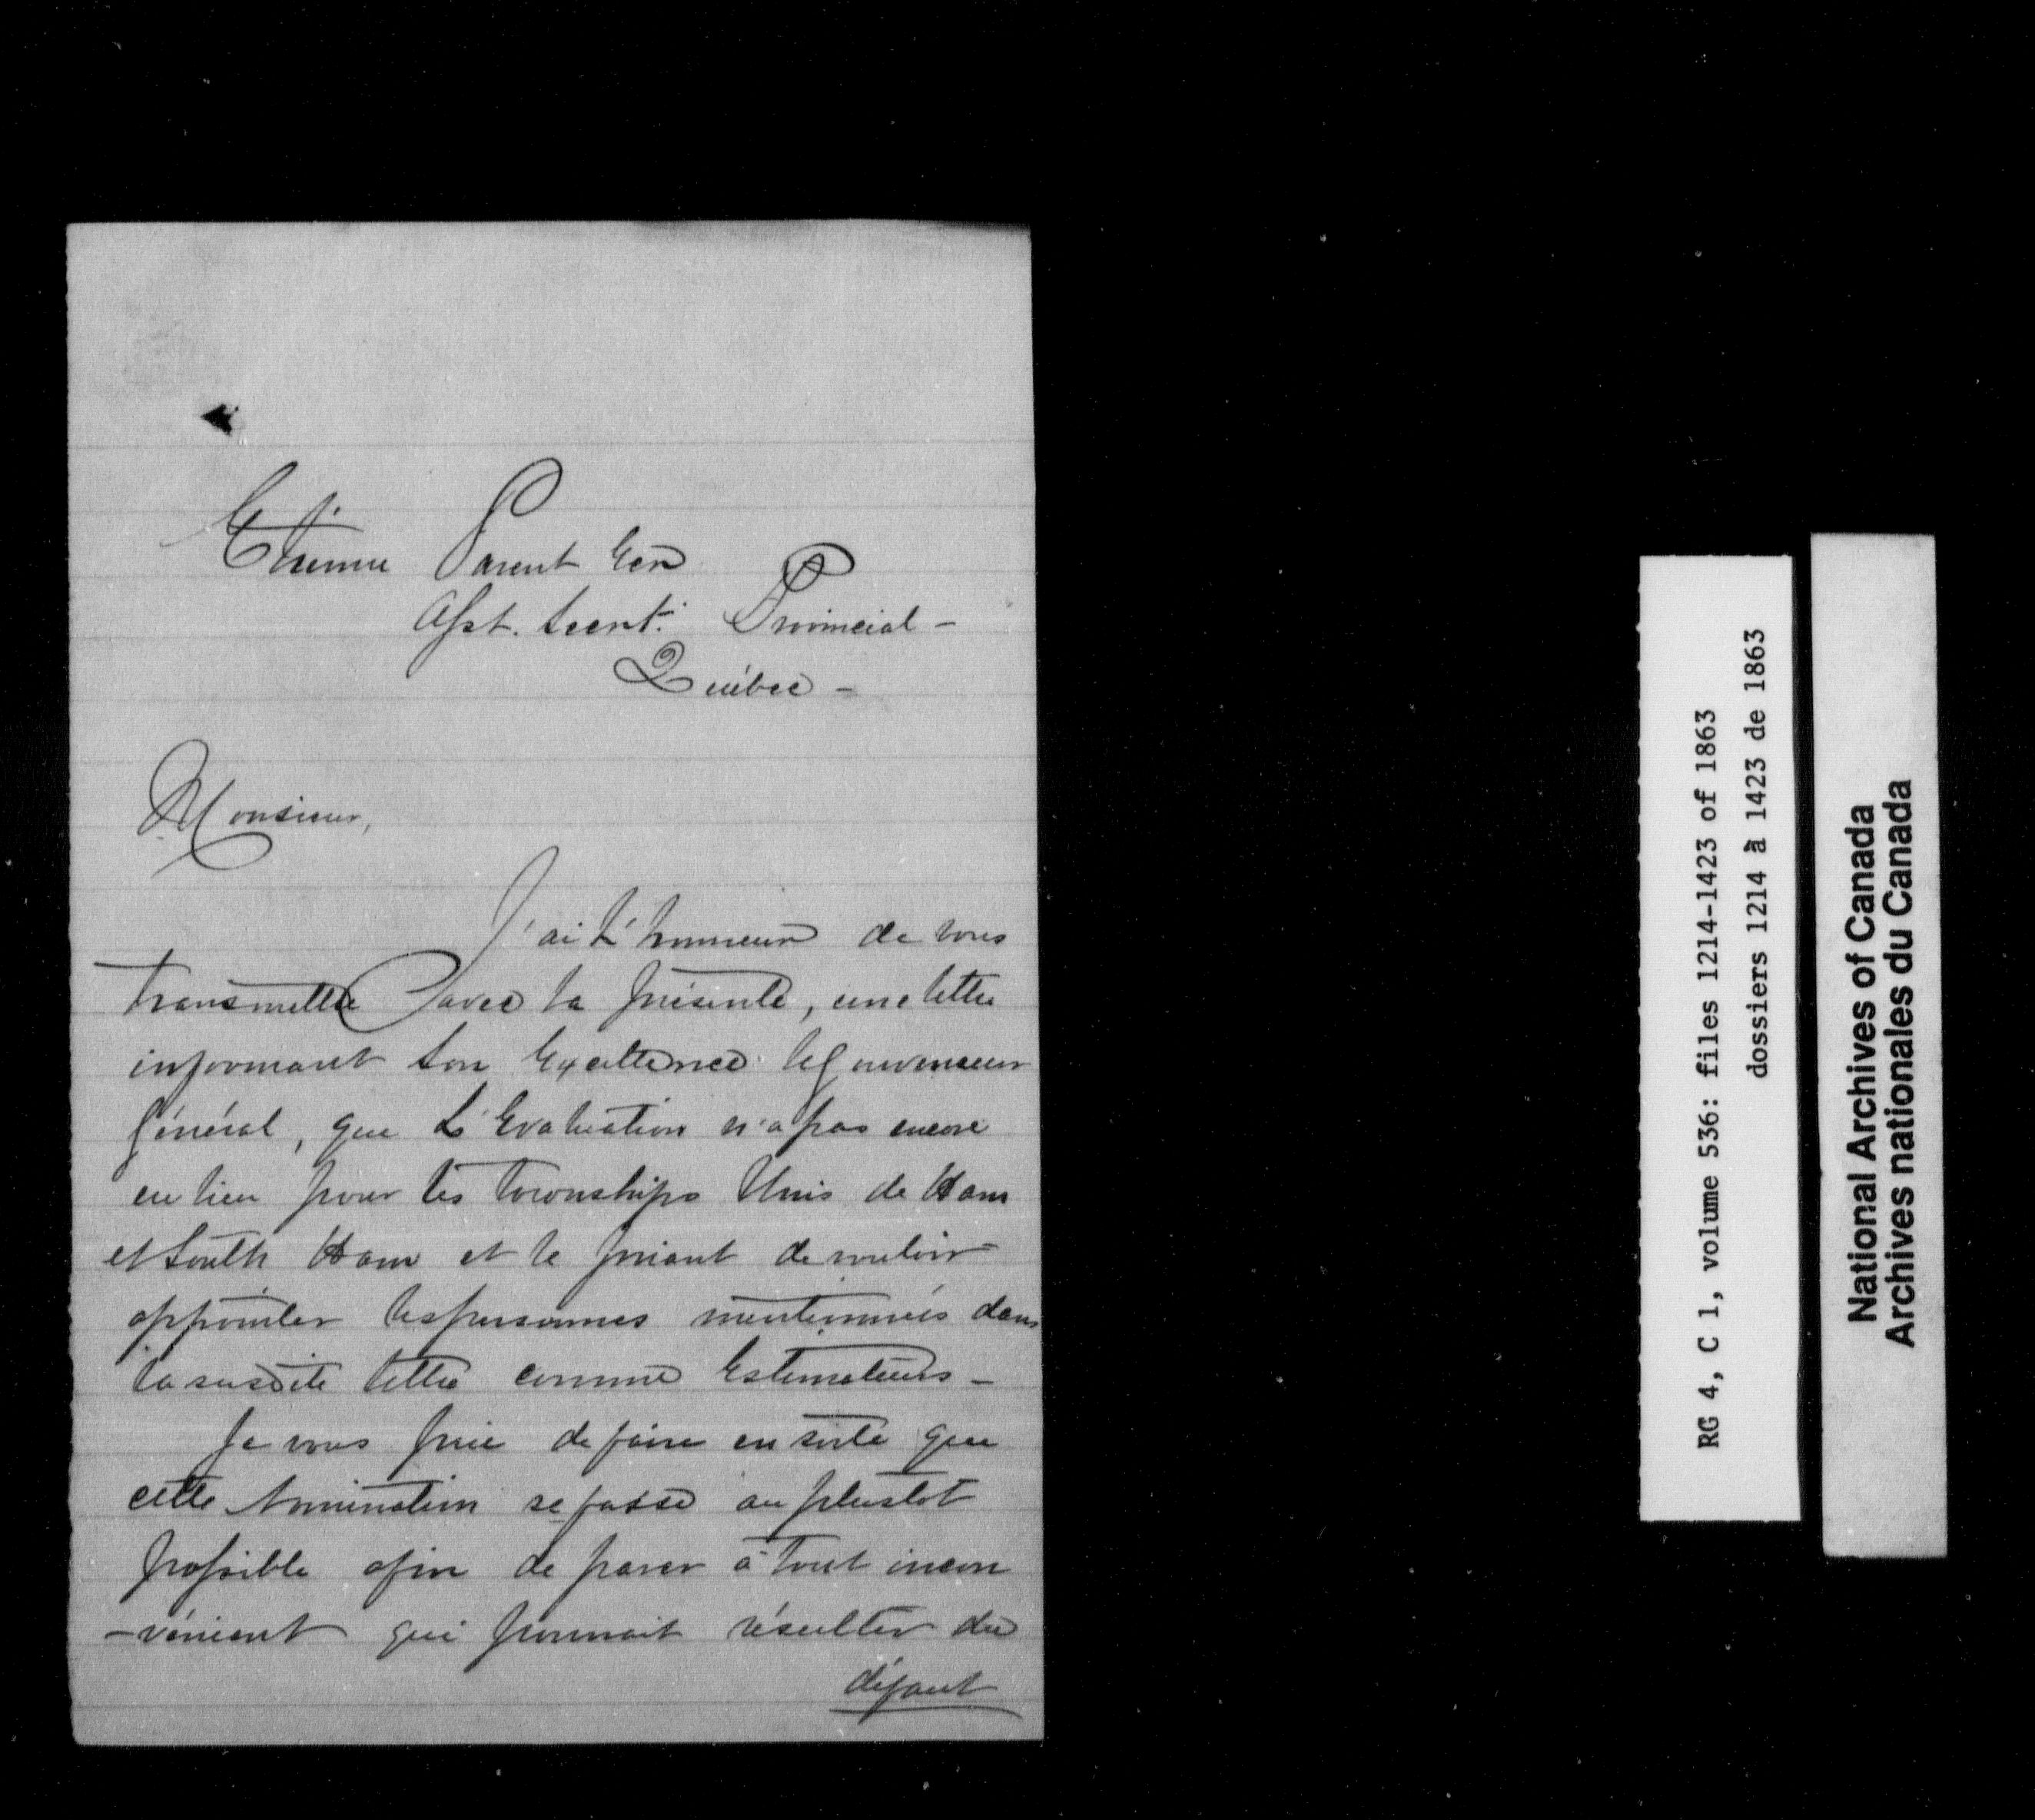 Etienne Parent Ecr
Asst. Secrt. Provincial -
Québec -
Monsieur,
J'ai L'honneur de vous
transmettre avec la présente, une lettre
informant Son Excellence le Gouverneur
Général, que L'Evaluation n'a pas encore
eu lieu pour les Townships Unis de Ham
et South Ham et le priant de vouloir
appointer les personnes mentionnées dans
la susdite lettre comme Estimateurs -
Je vous prie de faire en sorte que
cette Nomination se passe au plustot
possible afin de parer à tout incon
-vénient qui pourrait résulter du
défaut
RG 4, C 1, volume 536: files 1214-1423 of 1863
dossiers 1214 à 1423 de 1863
National Archives of Canada
Archives nationales du Canada